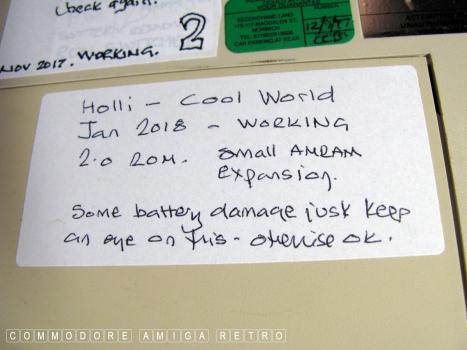 check again.
NOV 2017. WORKING. 2
SECONDHAND LAND
NORWICH
CAR PARKING AT REAR
Holli - Cool World
Jan 2018 - WORKING
2.0 ROM. Small AMRAM
Expansion.
Some battery damage jusk keep
an eye on this - otherwise ok.
COMMODORE AMIGA RETRO